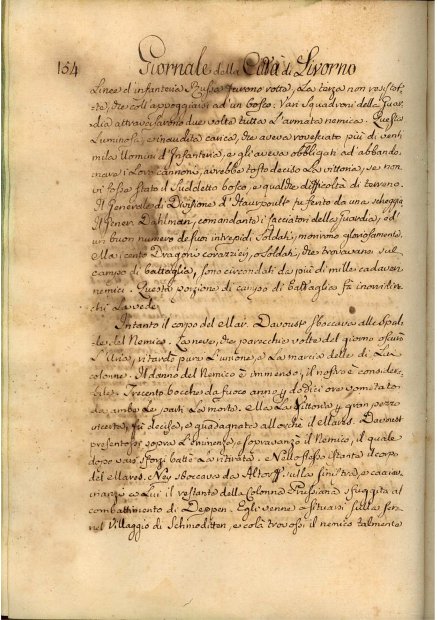 154 Giornale della Città di Livorno
Linee d'infanteria Russa furono rotte, La terza non resistette,
che coll'appoggiarsi ad'un bosco: Vari Squadroni della Guar-
dia attraversarono due volte tutta L'armata nemica. Questa
Luminosa, e inaudita carica, che aveva rovesciato più di venti
mila Uomini d'Infanteria, e gli aveva obbligati ad abbando-
nare i Loro cannoni, avrebbe tosto deciso La vittoria, se non
vi fosse stato il Suddetto bosco, e qualche difficoltà di terreno.
Il Generale di Divisione d'Hautpoult fu ferito da una scheggia
Il Gener. Dahlman, comandante i Cacciatori della guardia, ed
un buon numero de suoi intrepidi Soldati, morirono gloriosamente.
Ma i cento Dragoni corazzieri, o Soldati, che trovavansi sul
campo di battaglia, sono circondati da più di mille cadaveri
nemici. Questa porzione di campo di battaglia fa inorridire
chi La vede.
Intanto il corpo del Mar. Davoust sboccava alle Spal-
le del Nemico. La neve, che parecchie volte del giorno oscurò
L'Aria, ritardò pure L'unione, e La marcia delle di Lui
colonne. Il danno del Nemico è immenso, il nostro è conside-
bile. Trecento bocche da fuoco anno p dodici ore vomitato
da ambe Le parti La morte. Ma La Vittoria p gran pezzo
incerta, fù decisa, e guadagnata allorchè il Mares. Davoust
presentossi sopra L'eminenza, e sopravanzò il Nemico, il quale
dopo vari sforzi battè La ritirata. Nello stesso istante il corpo
del Mares. Ney sboccava da Altorff sulla sinistra, e cacciava
innanzi a Lui il restante della Colonna Prussiana sfuggita al
combattimento di Deppen. Egli venne a situarsi sulla sera
nel Villaggio di Schmoditten, e colà trovossi il nemico talmente